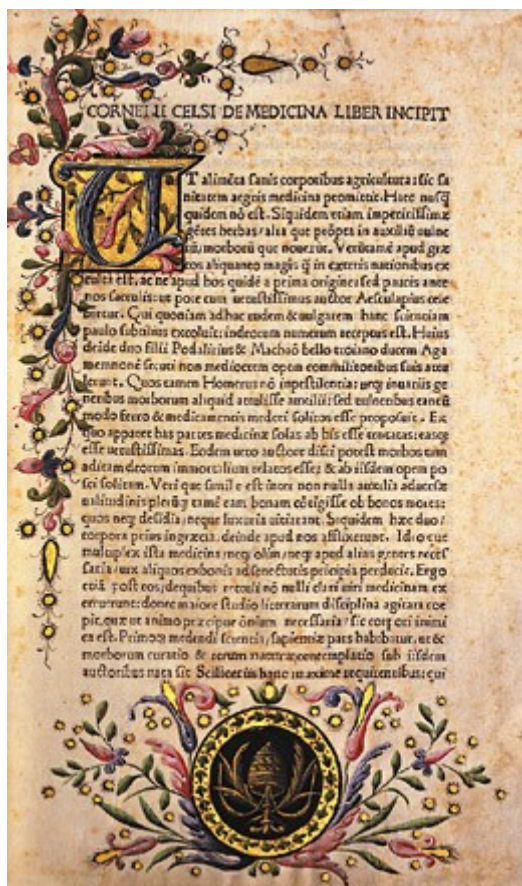 CORNELII CELSI DE MEDICINA LIBER INCIPIT
UT alimẽta sanis corporibus agricultura: sic sa
nitatem aegris medicina promittit. Haec nusq̃
quidem nõ est. Siquidem etiam imperitissimæ
gẽtes herbas/alia que prõpta in auxiliũ vulne
rũ/morborũ que noverũt. Verũtamẽ apud græ
cos aliquanto magis q̃ in ceteris nationibus ex
culta est. ac ne apud hos quidẽ a prima origine: sed paucis ante
nos sæculis: ut pote cum vetustissimus auctor Aesculapius cele
bretur. Qui quoniam adhuc rudem & vulgarem hanc scienciam
paulo subtilius excoluit: in deorum numerum receptus est. Huius
deide duo filii Podalirius & Machaõ bello troiano ducem Aga
memnonẽ secuti non mediocrem opem commilitonibus suis attu
lerunt. Quos tamen Homerus nõ in pestilentia: neq; in variis ge
neribus morborum aliquid attulisse auxilii: sed vulneribus tantũ
modo ferro & medicamentis mederi solitos esse proposuit. Ex
quo apparet has partes medicinæ solas ab his esse tentatas: easq;
esse vetustissimas. Eodem vero auctore disci potest morbos tum
ad iram deorum immortalium relatos esse: & ab iisdem opem po
sci solitam. Veri que simile est inter non nulla auxilia adversæ
valitudinis plerũq; tamẽ eam bonam cõtigisse ob bonos mores:
quos neq; desidia/neque luxuria vitiarant. Siquidem hæc duo/
corpora prius in græcia, deinde apud nos afflixerunt. Ideo que
multiplex ista medicina/neq; olim/neq; apud alias gentes neces
saria/vix aliquos ex nobis ad senectutis principia perducit. Ergo
etiã post eos/de quibus retuli nõ nulli clari viri medicinam ex
ercuerunt: donec maiore studio literarum disciplina agitari coe
pit. quæ ut animo præcipue õnium necessaria/sic corpori inimi
ca est. Primoq; medendi sciencia/sapientiæ pars habebatur. ut &
morborum curatio & rerum naturæ contemplatio sub iisdem
auctoribus nata sit Scilicet iis hanc maxime requirentibus: qui